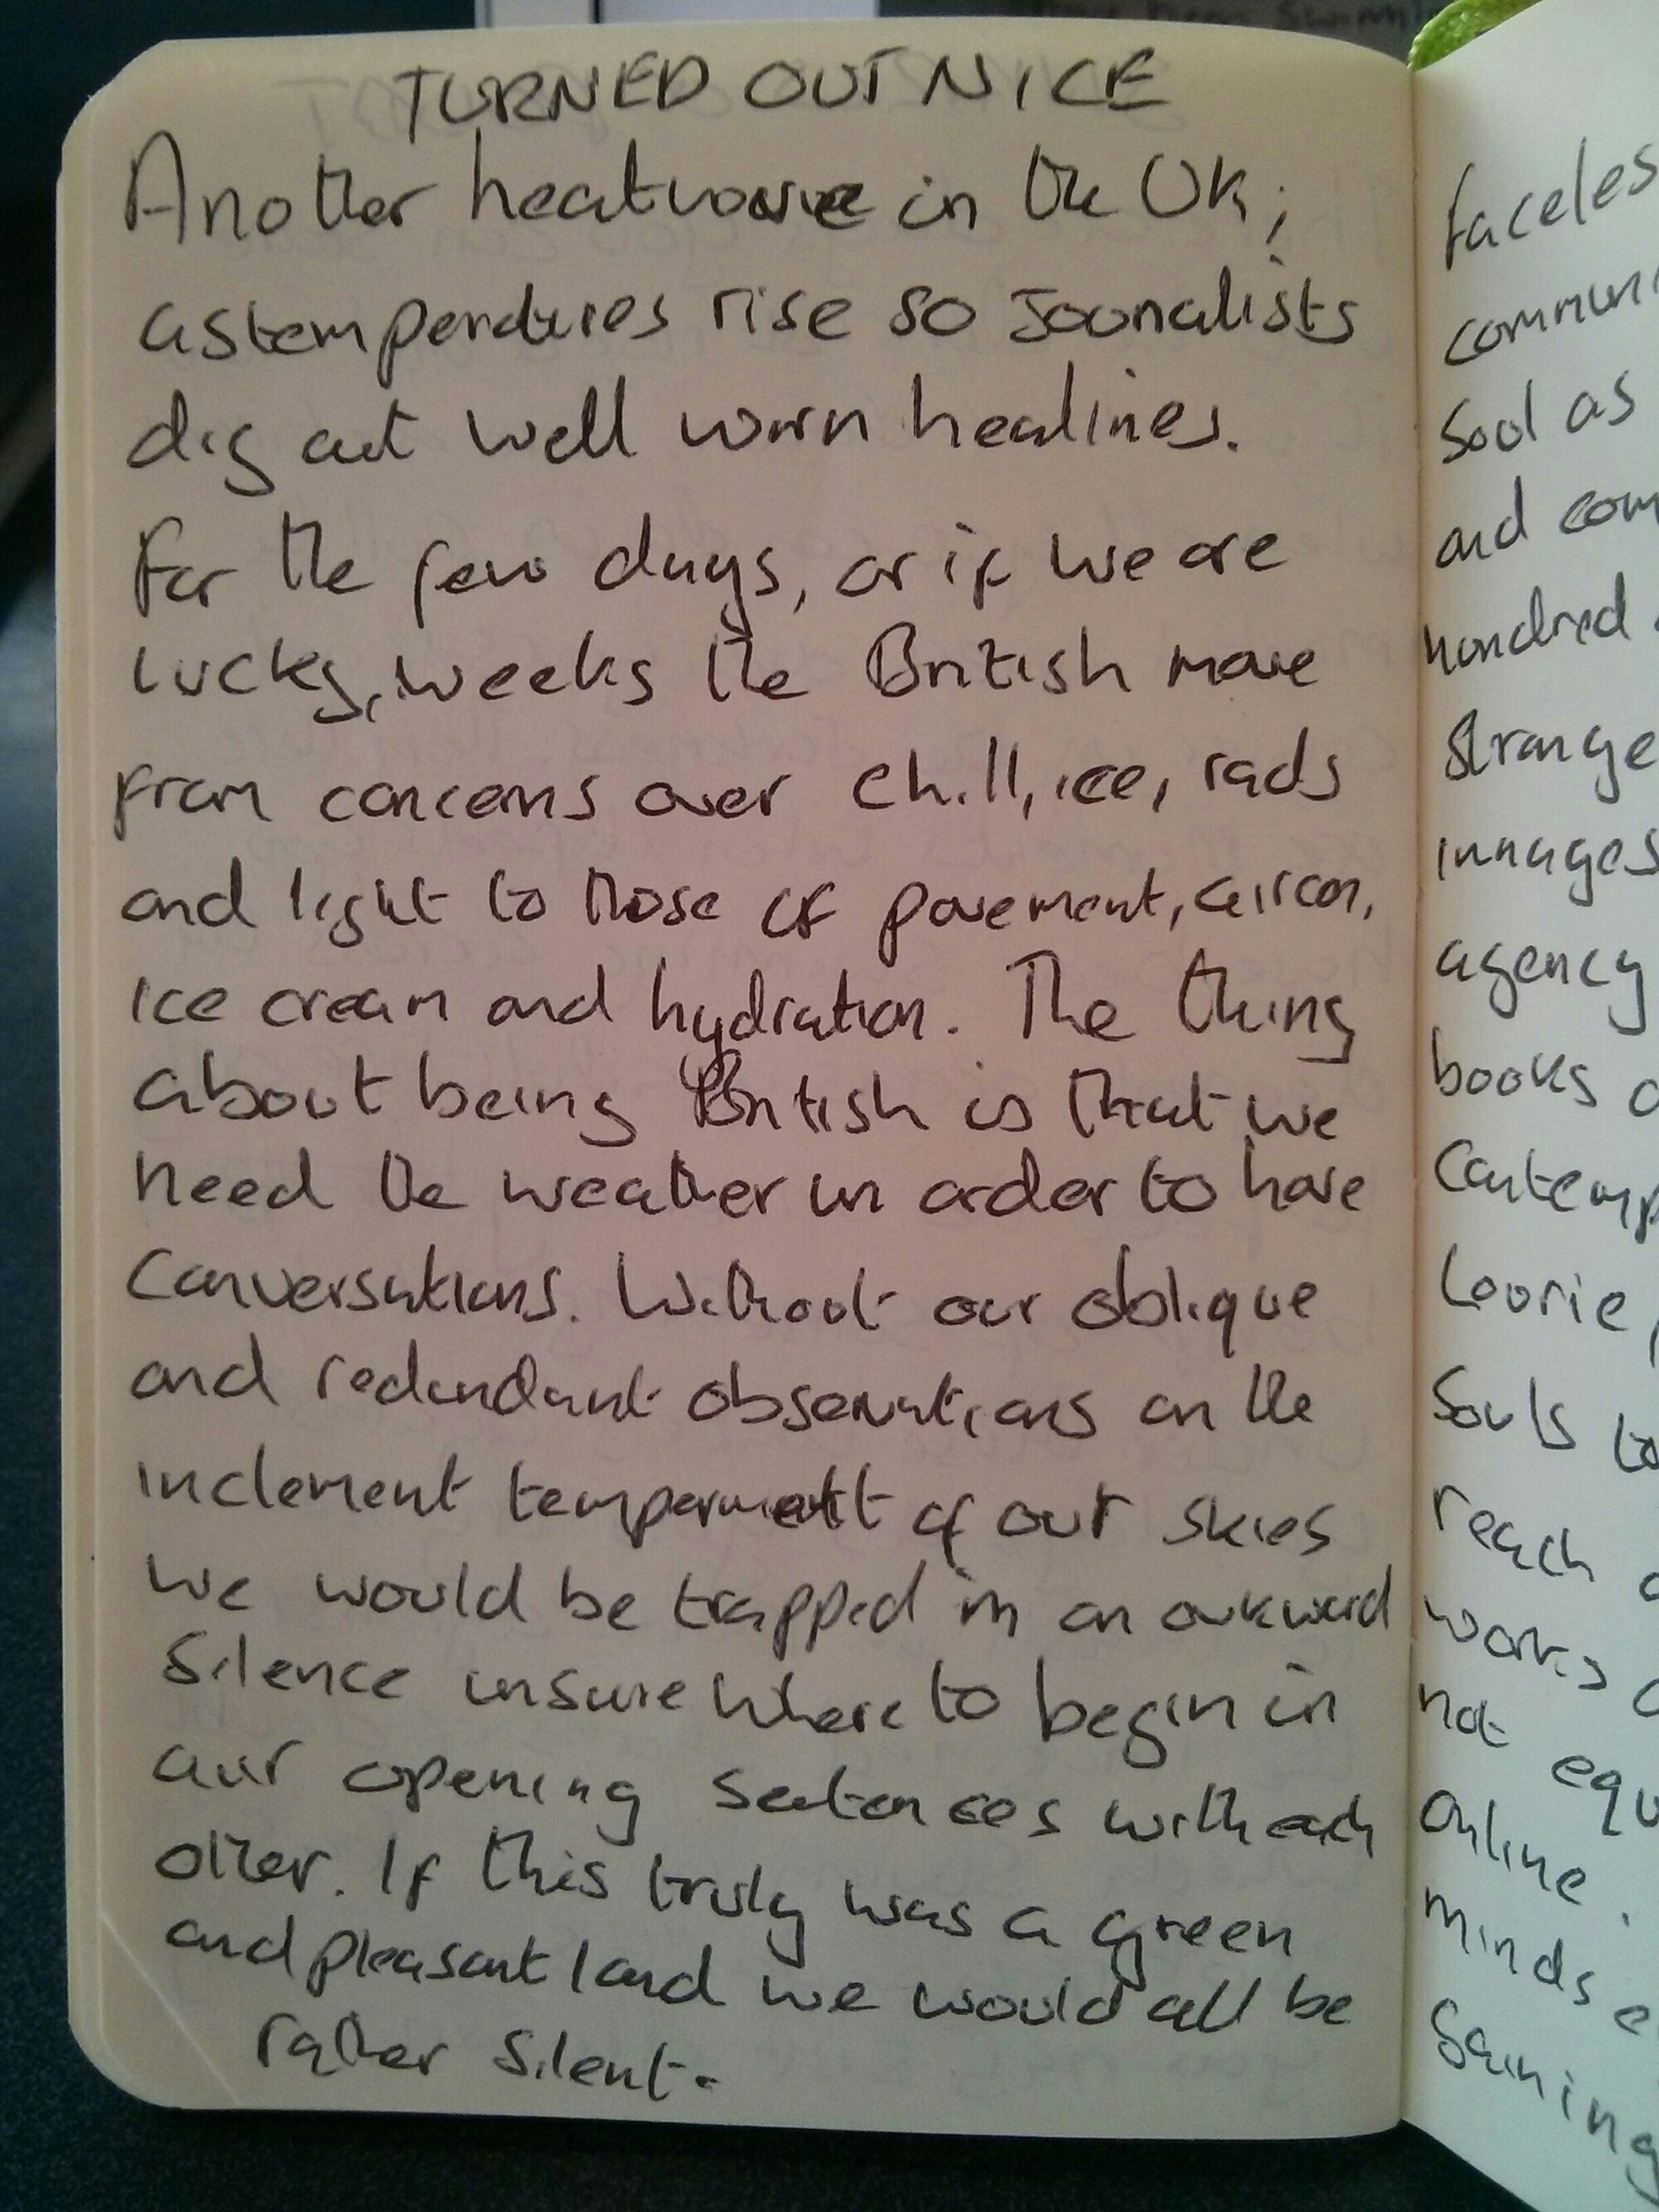 TURNED OUT NICE
Another heatwave in the UK;
as temperatures rise so Journalists
dig out well worn healines.
For the few days, or if we are
lucky, weeks the British move
from concerns over chill, ice, rads
and light to those of pavement, aircon,
ice cream and hydration. The thing
about being British is that we
need the weather in order to have
Conversations. Without our oblique
and redundant observations on the
inclement temperment of our skies
we would be trapped in an awkward
Silence unsure where to begin in
our opening sentences with each
other. If this truly was a green
and pleasant land we would all be
rather silent.
faceles
commun
Sool as
and com
hundred
Strange
images
agency
books
Contemp
Lourie
Souls to
reach
works
not equ
Online.
Minds
Gaining